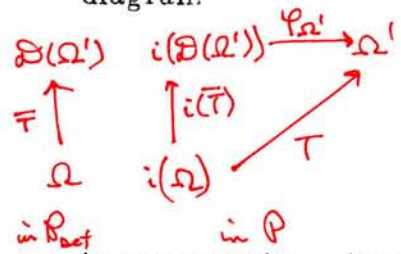 diagram
𝒟(Ω') i(𝒟(Ω')) φ_Ω' Ω'
T̅ i(T̅) T
Ω i(Ω)
in P_Det in P